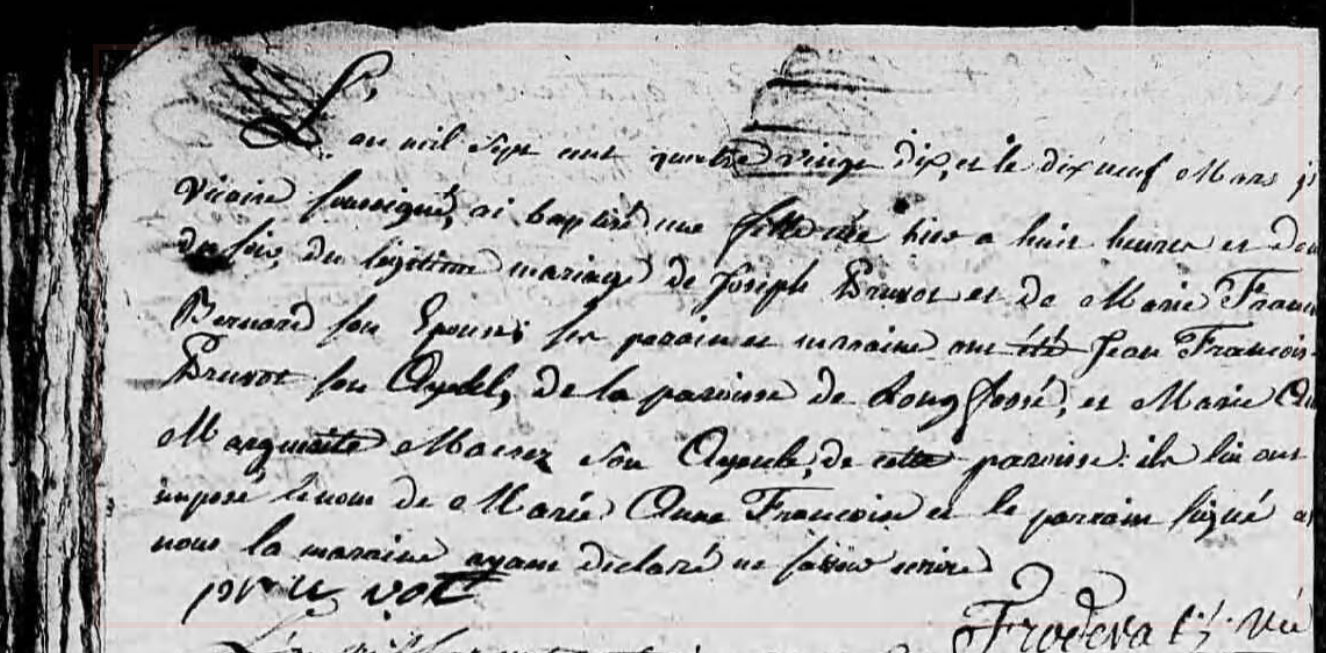 L'an mil sept cent quatre vingt dix, et le dix neuf Mars j
vicaire soussigné, ai baptisé une fille née hier a huit heures et de
du soir, du légitime mariage de Joseph Pruvot et de Marie Franc
Bernard son Epouse; ses parain et maraine ont été Jean Francois
Pruvot son Ayeul, de la paroisse de Longfossé, et Marie
Marguerite Macrez son Ayeule, de cette paroisse: ils lui ont
imposé le nom de Marie Anne Francoise et le parrain signé a
nous la maraine ayant declaré ne savoir ecrire
pru vot